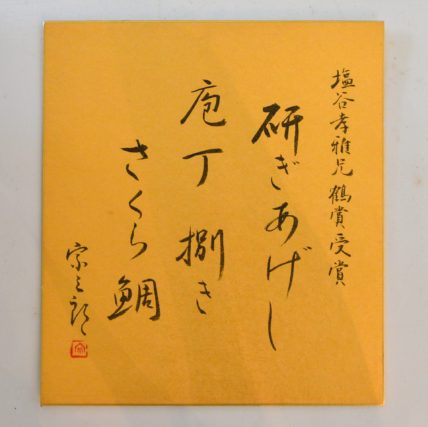 塩谷孝雅兄鶴賞受賞
研ぎあげし
庖丁捌き
さくら鯛
宗三郎